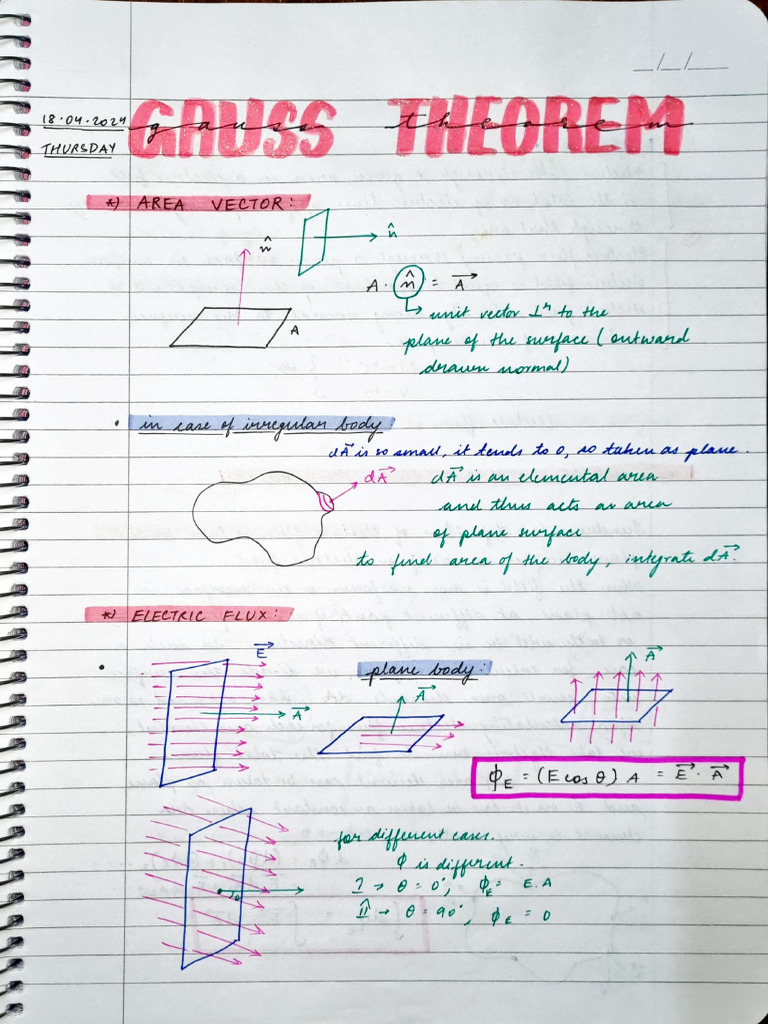 _/_/_
18.04.2024
THURSDAY
GAUSS THEOREM
gauss theorem
*) AREA VECTOR:
n̂
n̂
A
A · n̂ = A⃗
unit vector ⊥ʳ to the
plane of the surface (outward
drawn normal)
• in case of irregular body:
dA⃗ is so small, it tends to 0, so taken as plane.
dA⃗
dA⃗ is an elemental area
and thus acts as area
of plane surface
to find area of the body, integrate dA⃗.
*) ELECTRIC FLUX:
E⃗
A⃗
plane body:
A⃗
A⃗
ϕE = (E cos θ) A = E⃗ · A⃗
for different cases.
ϕ is different.
θ
I → θ = 0°, ϕE = E.A
II → θ = 90°, ϕE = 0